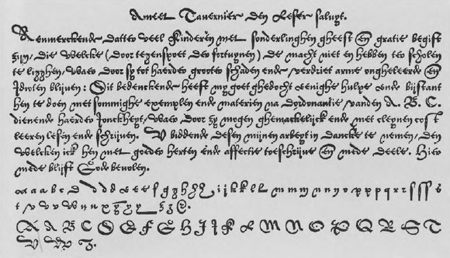 Ameet Tavernier den Leser saluyt.
Aenmerckende datter veel kinderen met sonderlinghen gheest en gratie begift
zijn, die welcke (door teghenspoet der fortuynen) de macht niet en hebben ter scholen
te ligghen, waer door sy tot haerder grooter schaden ende verdriet arme ongheleerde en
Idioten blijven: Dit bedenckende heeft my goet ghedocht eenighe hulpe ende bijstant
hen te doen met sommighe exemplen ende materien na d'ordonantie vanden A. B. C.
dienende haerder Jonckheyt, waer door sy moghen ghemackelijck ende met cleynen cost
leeren lesen ende schrijven. V biddende desen mijnen arbeyt in dancke te nemen, den
welcken ick hen met goeder herten ende affectie toeschrijve en mede deele. Hier
mede blijft Gode bevolen.
A B C D E F G H I K L M N O P Q R S T